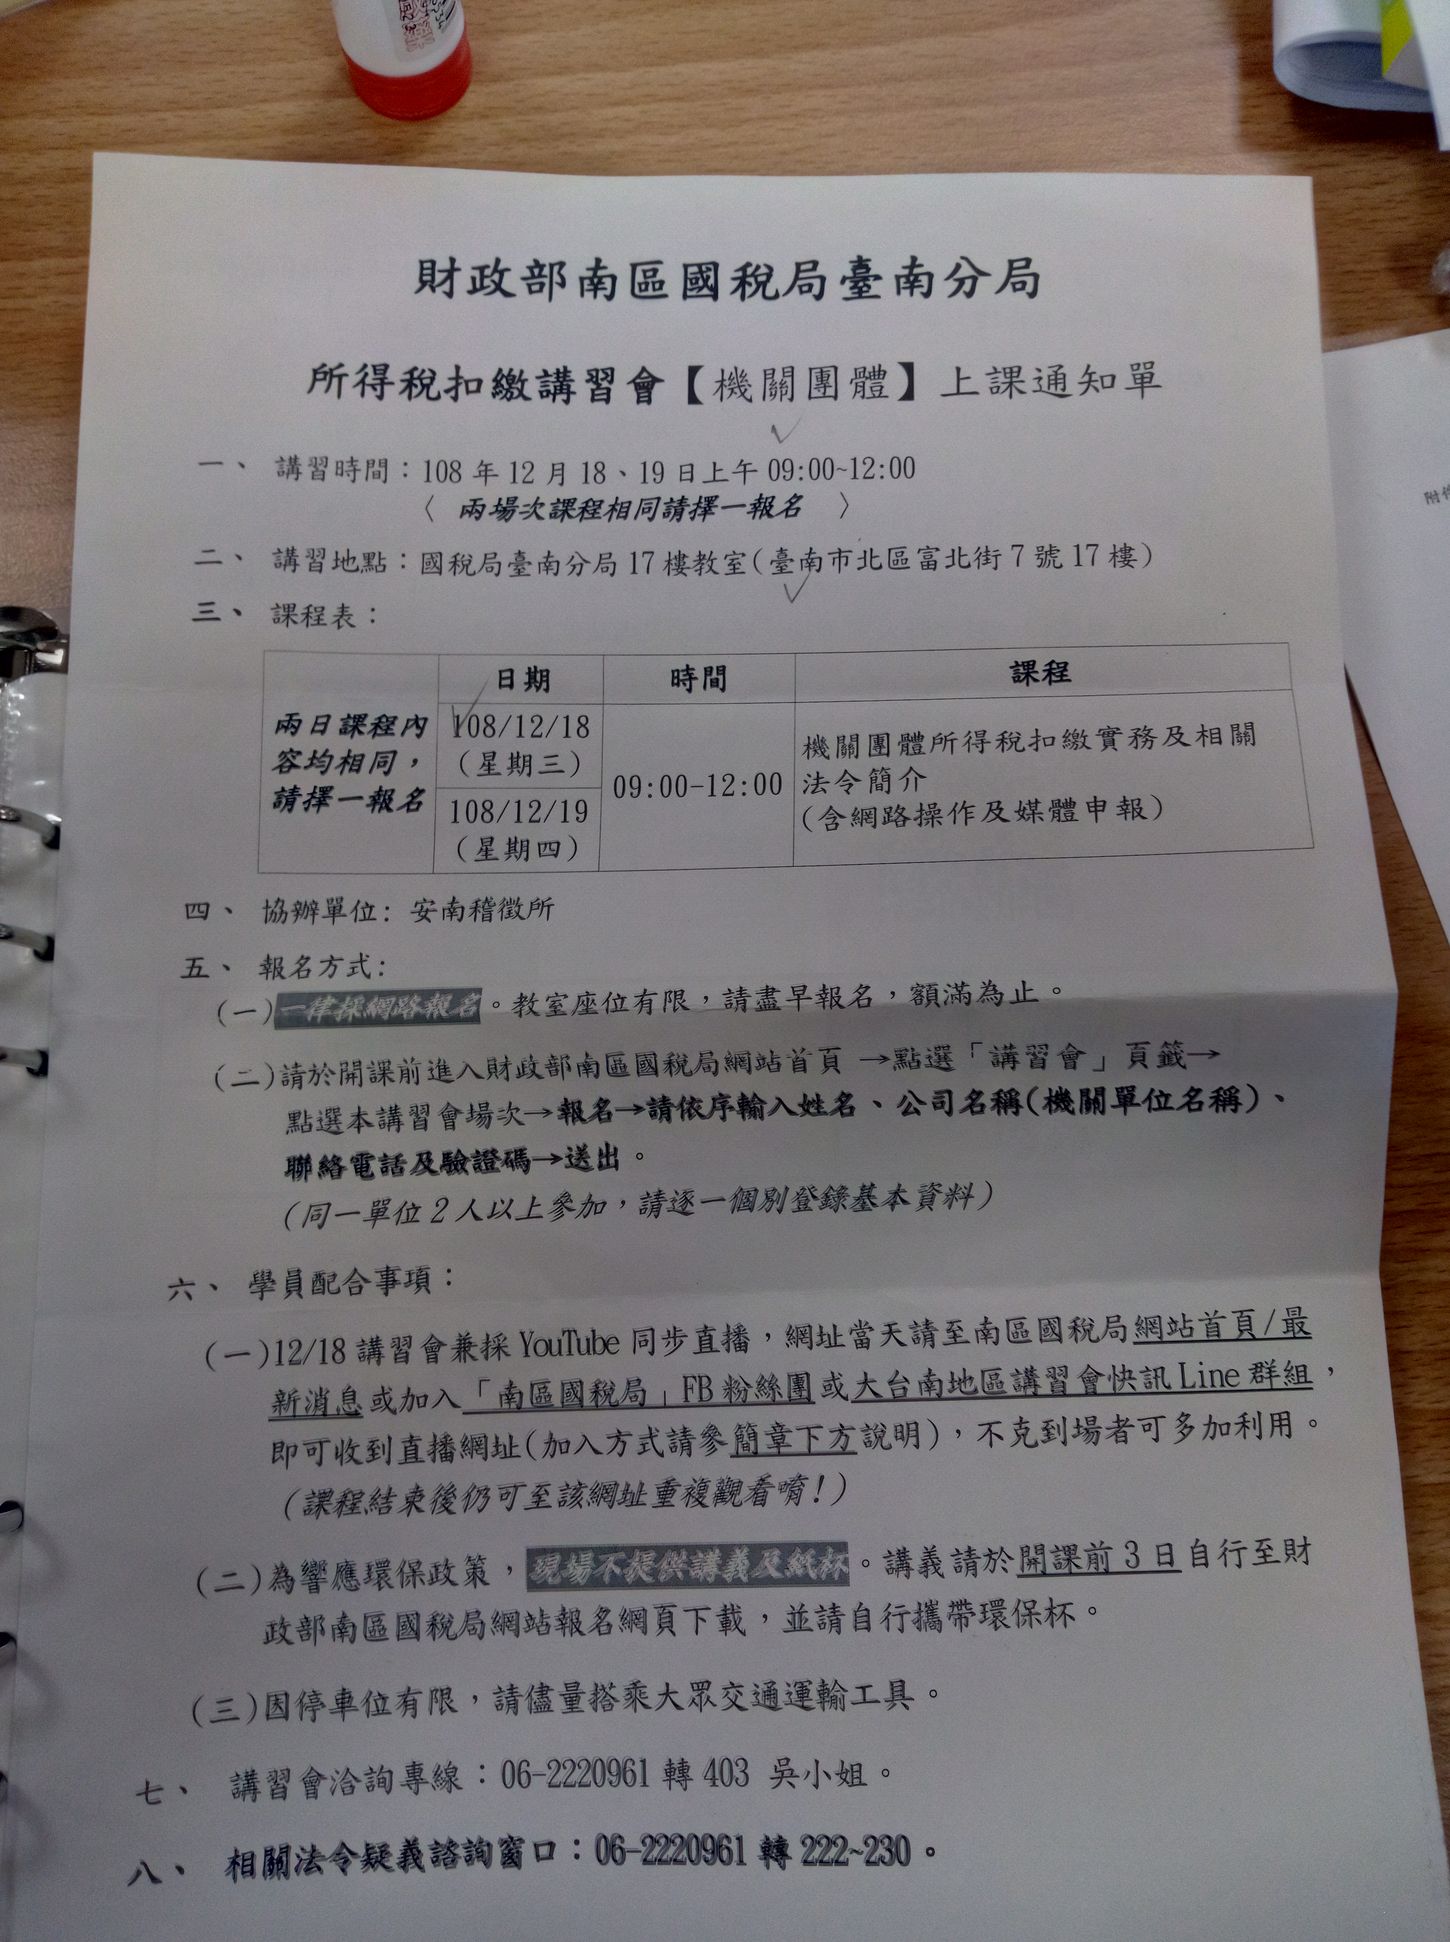 財政部南區國稅局臺南分局
所得稅扣繳講習會【機關團體】上課通知單
一、 講習時間：108 年 12 月 18、19 日上午 09:00~12:00
〈 兩場次課程相同請擇一報名 〉
二、 講習地點：國稅局臺南分局 17 樓教室(臺南市北區富北街 7 號 17 樓)
三、 課程表：
日期 時間 課程
兩日課程內容均相同，請擇一報名
108/12/18
(星期三)
108/12/19
(星期四)
09:00-12:00
機關團體所得稅扣繳實務及相關
法令簡介
(含網路操作及媒體申報)
四、 協辦單位: 安南稽徵所
五、 報名方式:
(一)一律採網路報名。教室座位有限，請盡早報名，額滿為止。
(二)請於開課前進入財政部南區國稅局網站首頁 →點選「講習會」頁籤→
點選本講習會場次→報名→請依序輸入姓名、公司名稱(機關單位名稱)、
聯絡電話及驗證碼→送出。
(同一單位 2 人以上參加，請逐一個別登錄基本資料)
六、 學員配合事項：
(一)12/18 講習會兼採 YouTube 同步直播，網址當天請至南區國稅局網站首頁/最
新消息或加入「南區國稅局」FB 粉絲團或大台南地區講習會快訊 Line 群組，
即可收到直播網址(加入方式請參簡章下方說明)，不克到場者可多加利用。
(課程結束後仍可至該網址重複觀看唷!)
(二)為響應環保政策，現場不提供講義及紙杯。講義請於開課前 3 日自行至財
政部南區國稅局網站報名網頁下載，並請自行攜帶環保杯。
(三)因停車位有限，請儘量搭乘大眾交通運輸工具。
七、 講習會洽詢專線：06-2220961 轉 403 吳小姐。
八、 相關法令疑義諮詢窗口：06-2220961 轉 222~230。